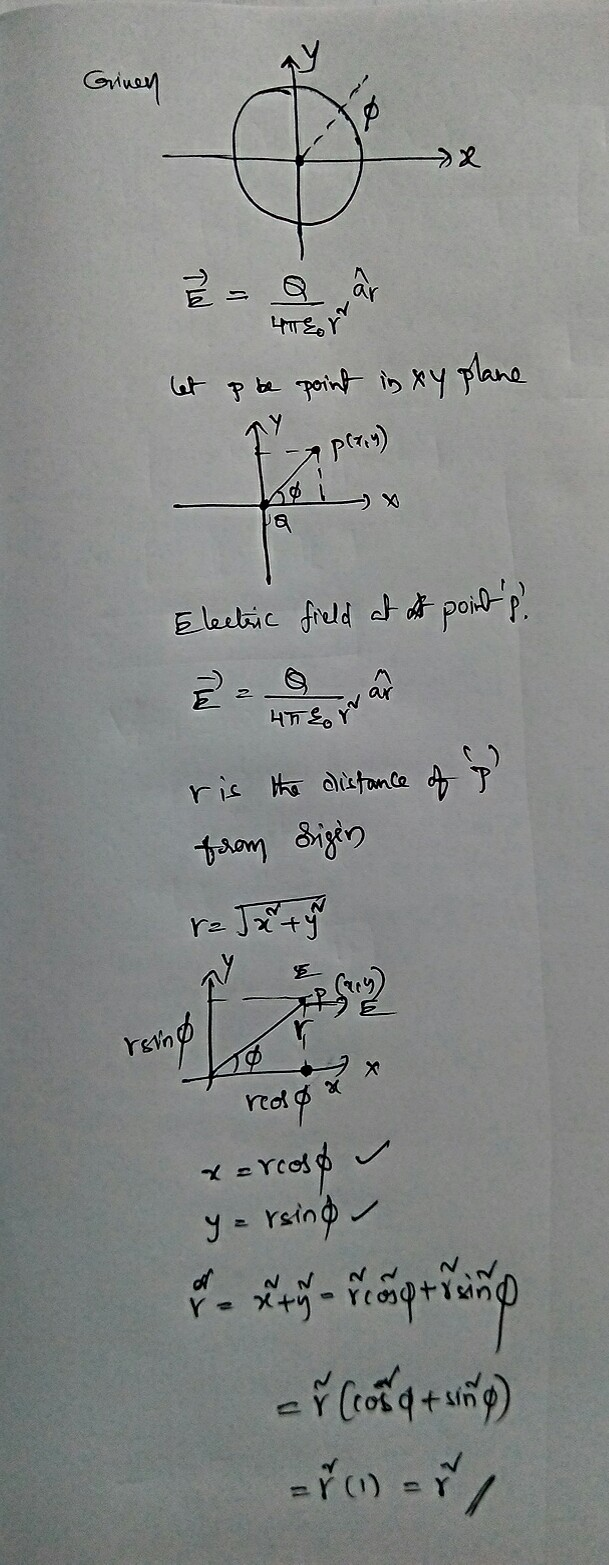 Given
y
ϕ
x
E⃗ = Q/(4πε₀r²) âr
Let p be point in xy plane
y
p(x,y)
ϕ
x
Q
Electric field at point 'p'.
E⃗ = Q/(4πε₀r²) âr
r is the distance of 'p'
from origin
r = √(x²+y²)
y
E
p (x,y)
E
r
rsinϕ
ϕ
x
rcosϕ x
x = rcosϕ ✓
y = rsinϕ ✓
r² = x²+y² = r²cos²ϕ+r²sin²ϕ
= r²(cos²ϕ+sin²ϕ)
= r²(1) = r²